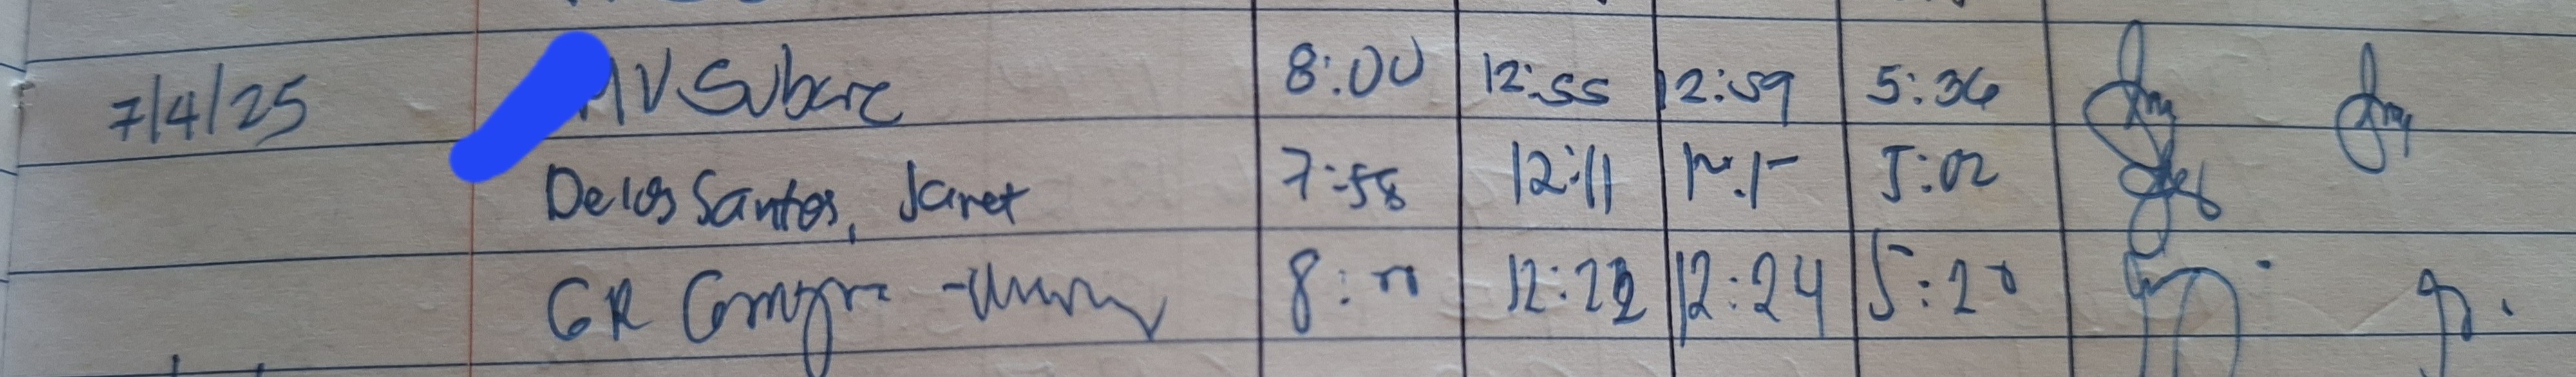 7/4/25 MV Subere 8:00 12:55 12:59 5:36
Delos Santos, Janet 7:58 12:11 5:02
GR 8:00 12:22 12:24 5:20